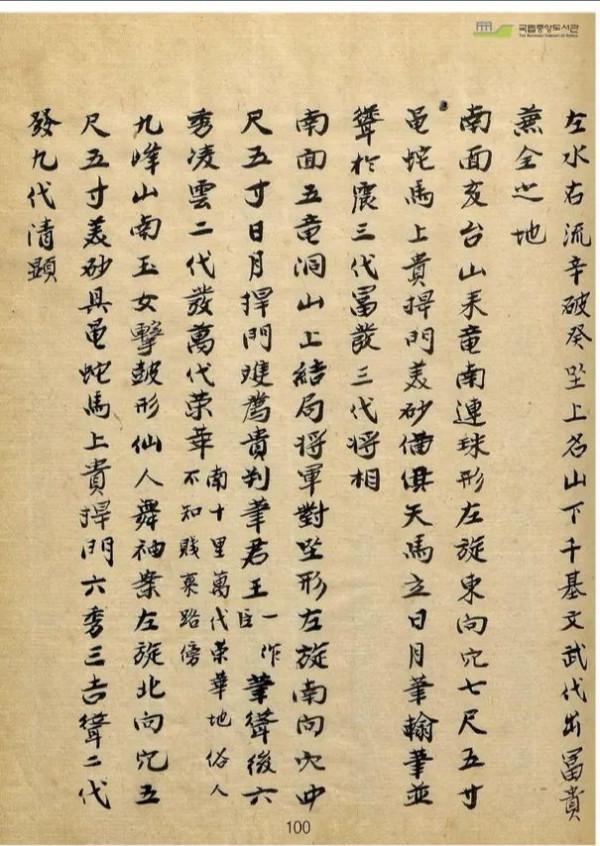 국립중앙도서관
THE NATIONAL LIBRARY OF KOREA
左水右流辛破癸坐上名山下千基文武代出冨貴
兼全之地
南面亥台山来竜南連珠形左旋東向穴七尺五寸
黾蛇馬上貴捍門美砂俻俱天馬立日月筆翰筆並
聳於震三代冨發三代将相
南面五竜洞山上結局将軍對坐形左旋南向穴四
尺五寸日月捍門雙薦貴判筆君王一作臣筆聳後六
秀凌雲二代發萬代荣華南十里萬代荣華地俗人
不知賤棄路傍
九峰山南玉女擊鼓形仙人舞袖案左旋北向穴五
尺五寸美砂具黾蛇馬上貴捍門六秀三吉聳二代
發九代清顕
100